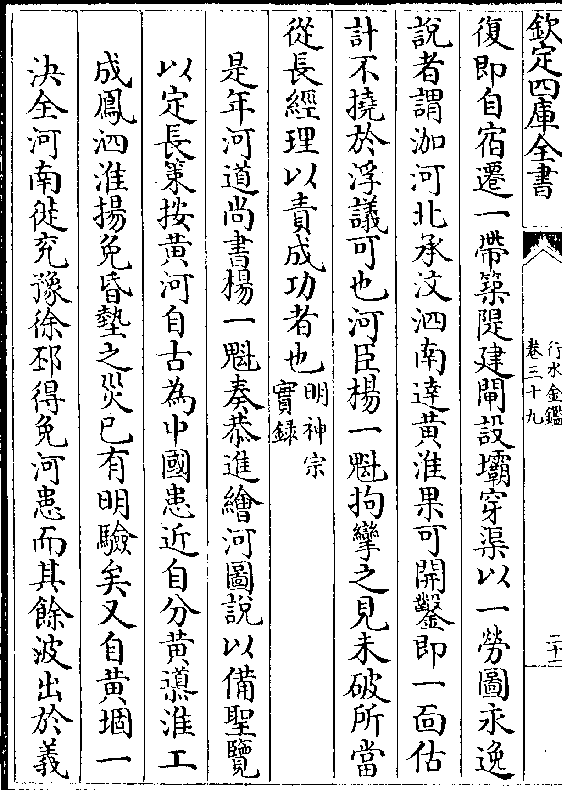 欽定四庫全書
行水金鑑
卷三十九
二十二
復即自宿遷一帶築隄建閘設壩穿渠以一勞圖永逸
說者謂泇河北承汶泗南達黃淮果可開鑿即一面估
計不撓於浮議可也河臣楊一魁拘攣之見未破所當
從長經理以責成功者也明神宗
實錄
是年河道尚書楊一魁奏恭進繪河圖說以備聖覽
以定長策按黃河自古為中國患近自分黃導淮工
成鳳泗淮揚免昏墊之災已有明驗矣又自黃堌一
決全河南徙兖豫徐邳得免河患而其餘波出於義